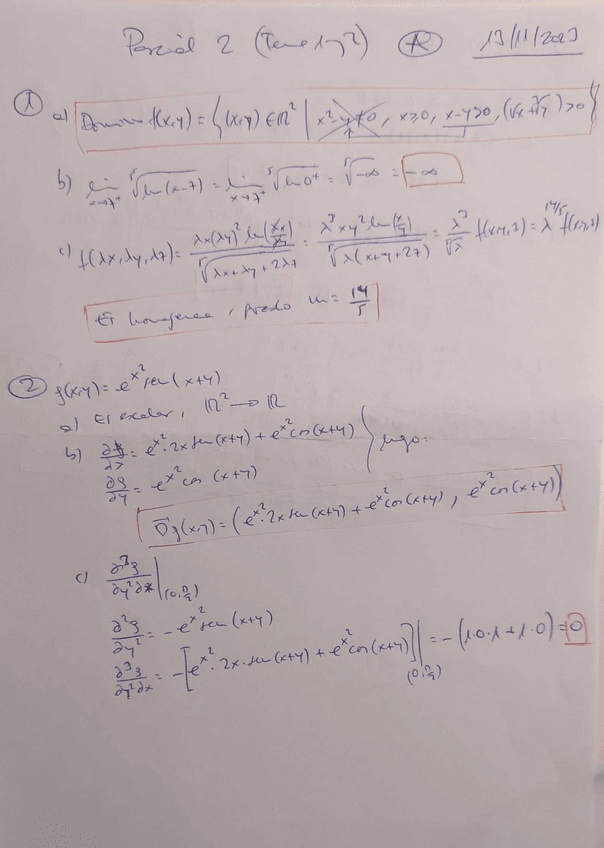 Parcial 2 (Tema 1 y 2) R 13/11/2023
① a) Dominio f(x,y) = {(x,y) ∈ ℝ² | x²-y≠0, x≥0, x-y>0, (√x+∛y)>0}
b) lim x→7⁺ ⁵√ln(x-7) = lim x→7⁺ ⁵√ln 0⁺ = ⁵√-∞ = -∞
c) f(λx,λy,λz) = λx(λy)² ln(λx/λy) / ⁵√(λx+λy+2λz) = λ³xy² ln(x/y) / ⁵√(λ(x+y+2z)) = λ³/⁵√λ f(x,y,z) = λ^(14/5) f(x,y,z)
Es homogénea, grado m = 14/5
② g(x,y) = e^(x²) sen(x+y)
a) Es escalar, ℝ² → ℝ
b) ∂g/∂x = e^(x²)·2x sen(x+y) + e^(x²) cos(x+y) } luego:
∂g/∂y = e^(x²) cos(x+y)
∇g(x,y) = (e^(x²)·2x sen(x+y) + e^(x²) cos(x+y), e^(x²) cos(x+y))
c) ∂³g/∂y²∂x |(0,π/2)
∂²g/∂y² = -e^(x²) sen(x+y)
∂³g/∂y²∂x = -[e^(x²)·2x·sen(x+y) + e^(x²) cos(x+y)] |(0,π/2) = -(1·0·1+1·0) = 0